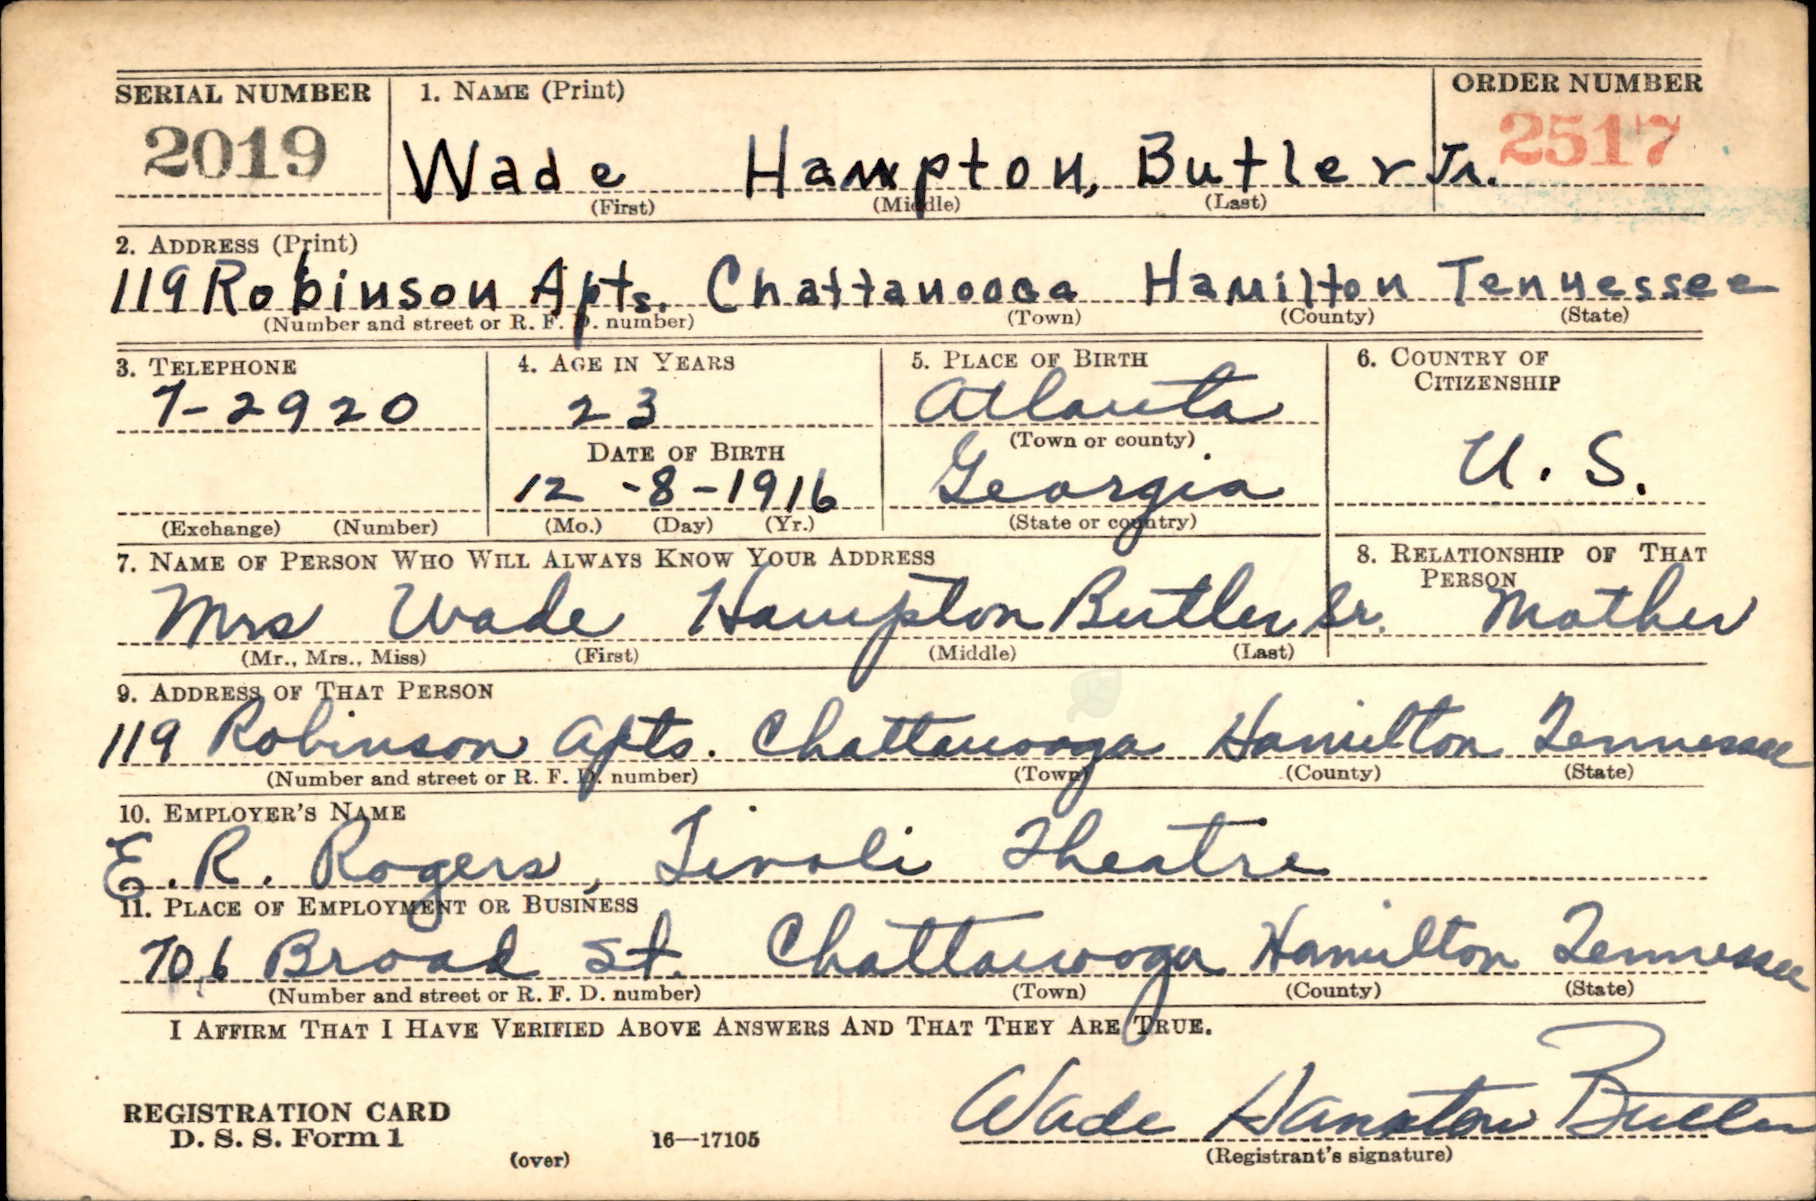 SERIAL NUMBER 1. NAME (Print) ORDER NUMBER
2019 Wade Hampton, Butler Jr. 2517
(First) (Middle) (Last)
2. ADDRESS (Print)
119 Robinson Apts. Chattanooga Hamilton Tennessee
(Number and street or R. F. D. number) (Town) (County) (State)
3. TELEPHONE 4. AGE IN YEARS 5. PLACE OF BIRTH 6. COUNTRY OF CITIZENSHIP
7-2920 23 Atlanta
DATE OF BIRTH (Town or county)
12 -8-1916 Georgia U. S.
(Exchange) (Number) (Mo.) (Day) (Yr.) (State or country)
7. NAME OF PERSON WHO WILL ALWAYS KNOW YOUR ADDRESS 8. RELATIONSHIP OF THAT PERSON
Mrs Wade Hampton Butler Sr. Mother
(Mr., Mrs., Miss) (First) (Middle) (Last)
9. ADDRESS OF THAT PERSON
119 Robinson Apts. Chattanooga Hamilton Tennessee
(Number and street or R. F. D. number) (Town) (County) (State)
10. EMPLOYER'S NAME
E. R. Rogers, Tivoli Theatre
11. PLACE OF EMPLOYMENT OR BUSINESS
706 Broad St. Chattanooga Hamilton Tennessee
(Number and street or R. F. D. number) (Town) (County) (State)
I AFFIRM THAT I HAVE VERIFIED ABOVE ANSWERS AND THAT THEY ARE TRUE.
Wade Hampton Butler
REGISTRATION CARD
D. S. S. Form 1 16—17105
(over) (Registrant's signature)